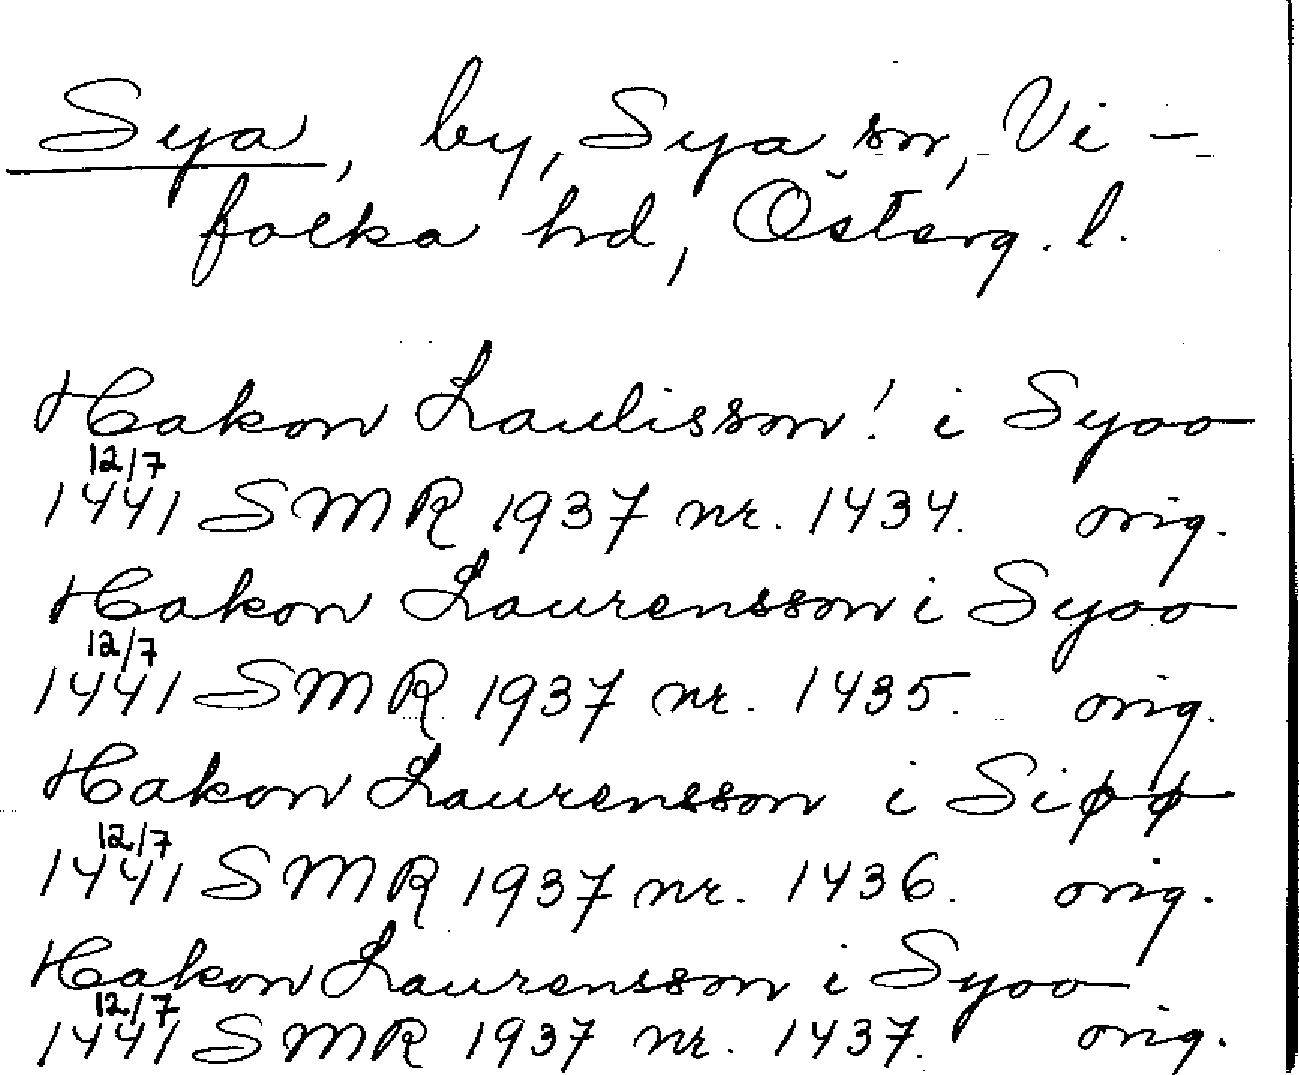 Sya, by, Sya sn, Vi-
folka hd, Österg. l.
Hakon Laulisson! i Syoo
12/7
1441 SMR 1937 nr. 1434. orig.
Hakon Laurensson i Syoo
12/7
1441 SMR 1937 nr. 1435. orig.
Hakon Laurensson i Siøø
12/7
1441 SMR 1937 nr. 1436. orig.
Hakon Laurensson i Syoo
12/7
1441 SMR 1937 nr. 1437. orig.